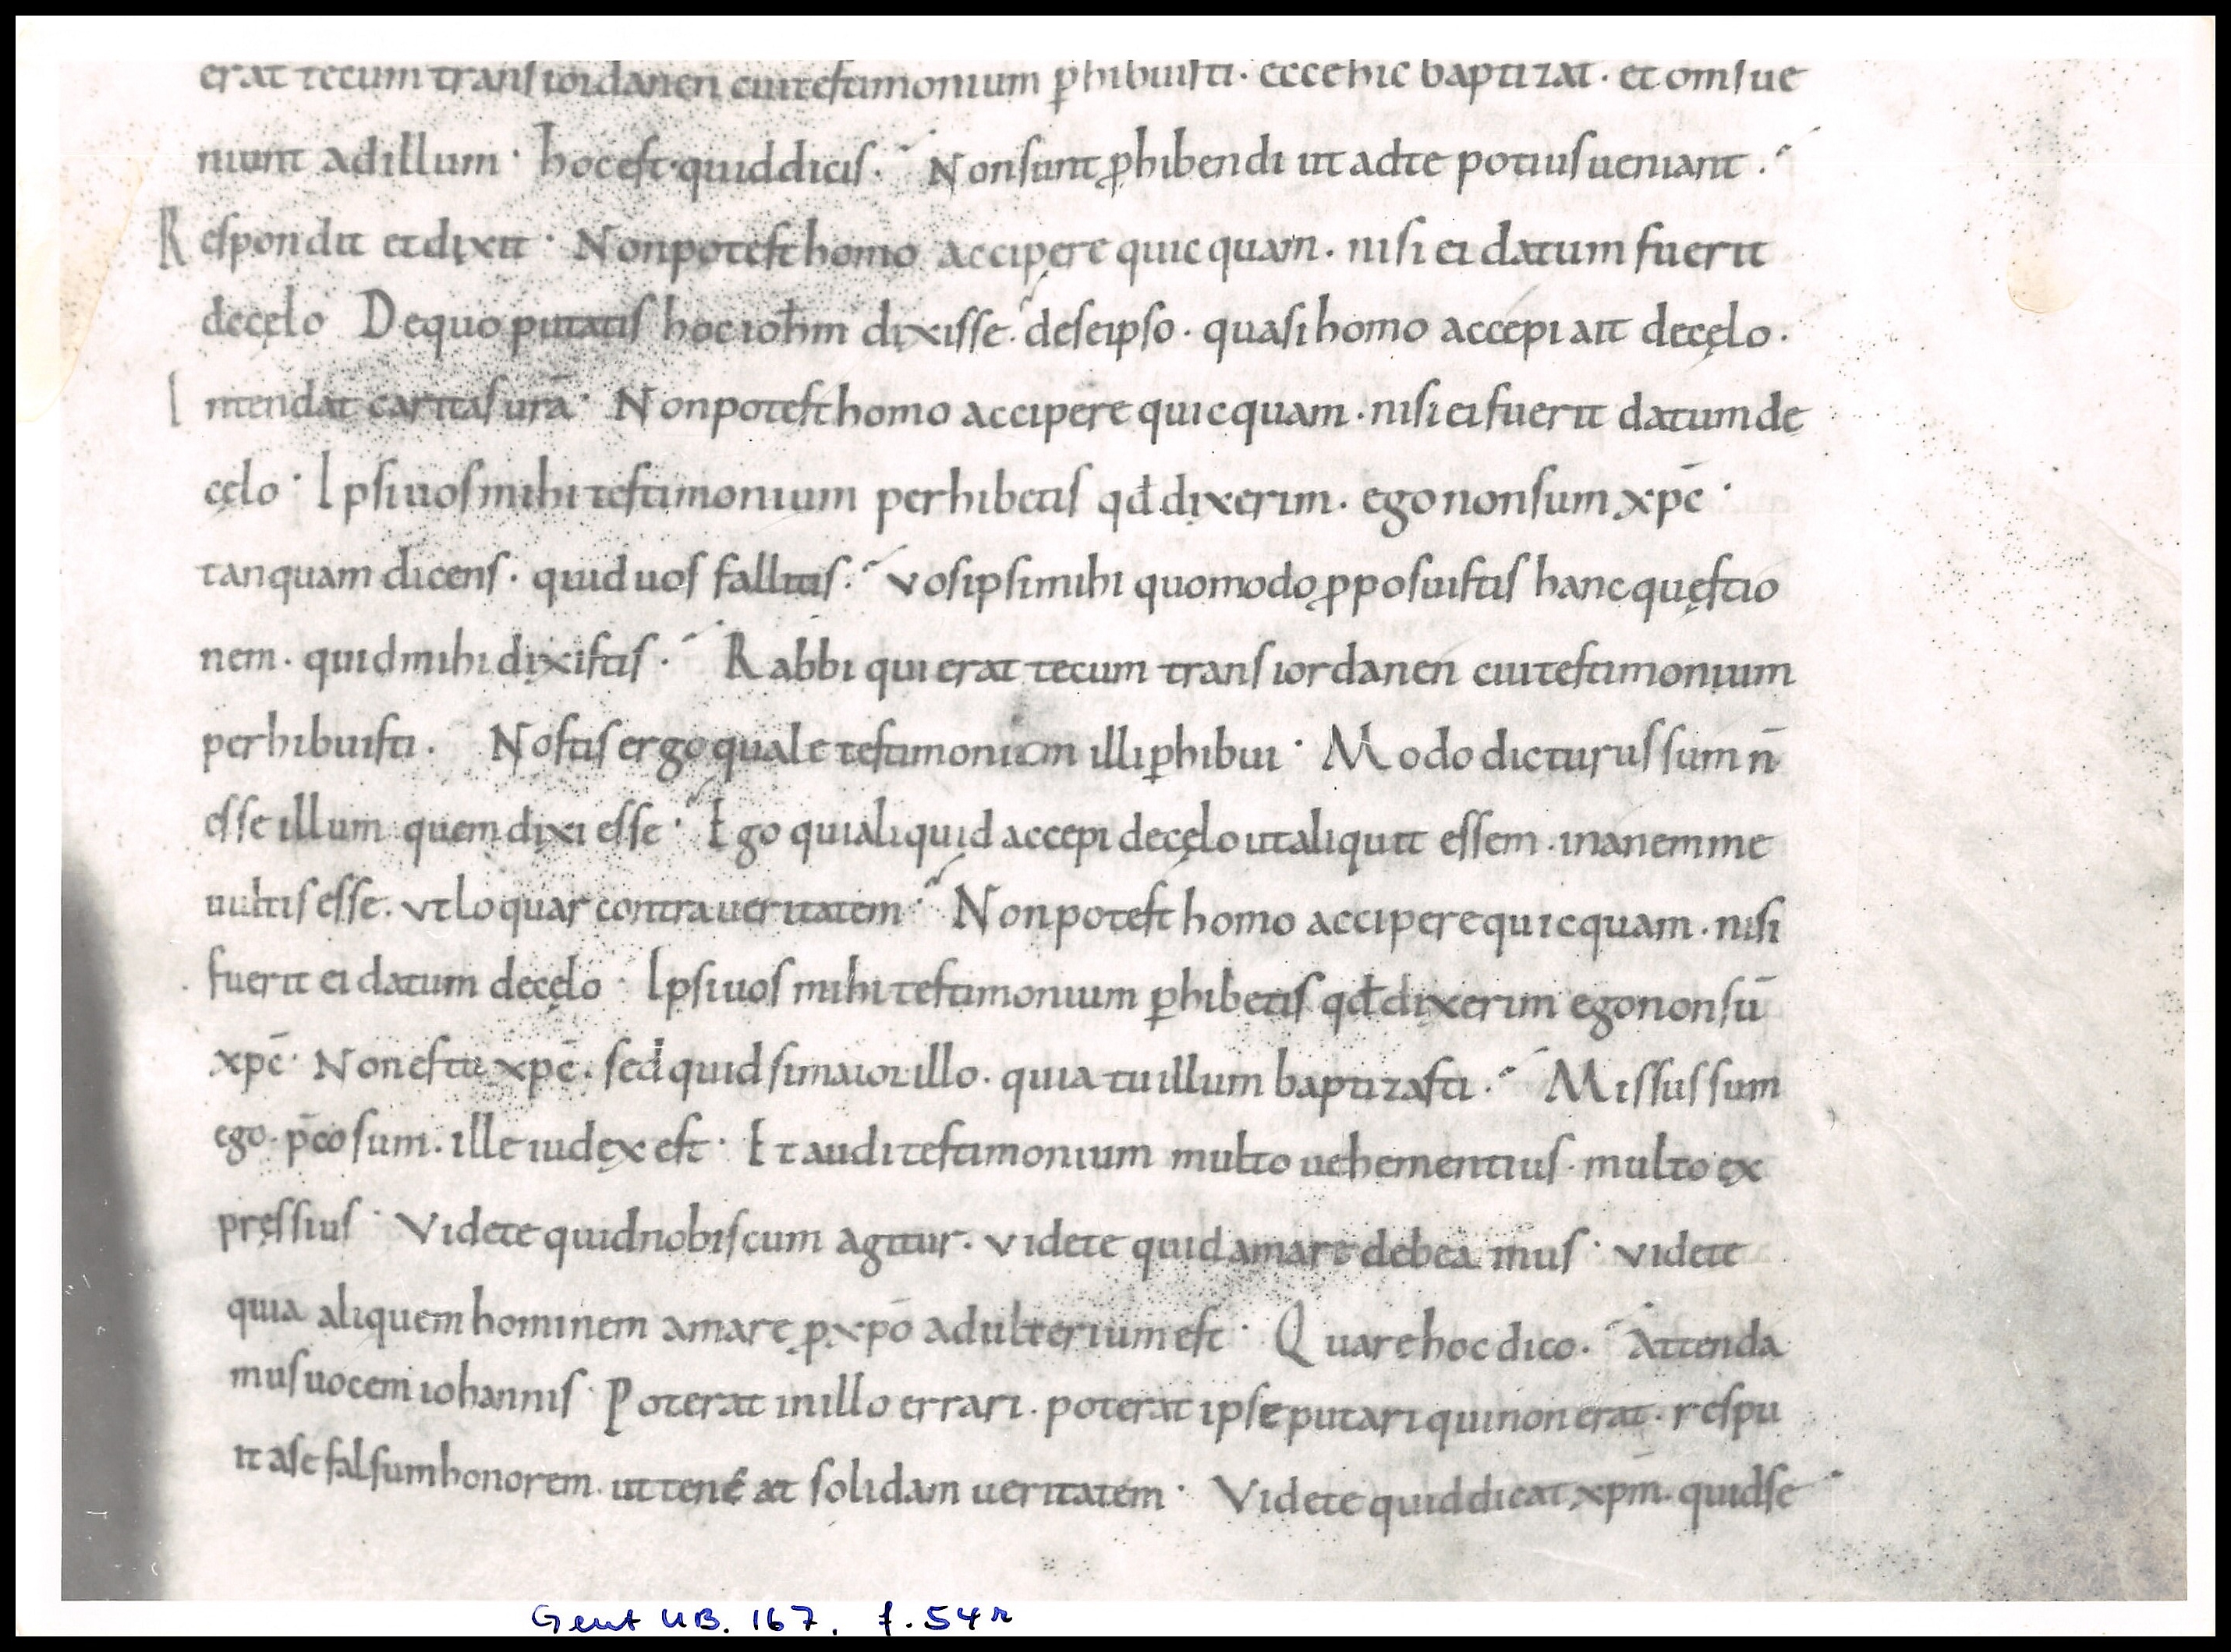 erat tecum trans iordanen cui testimonium ꝑhibuisti · ecce hic baptizat · et om̄s ue
niunt ad illum · hoc est · quid dicis · Non sunt ꝓhibendi ut ad te potius ueniant ·
Respondit et dixit · Non potest homo accipere quicquam · nisi ei datum fuerit
de cęlo De quo putatis hoc ioh̄m dixisse · de se ipso · quasi homo accepi ait de cęlo ·
Intendat caritas ur̄a · Non potest homo accipere quicquam · nisi ei fuerit datum de
cęlo · Ipsi uos mihi testimonium perhibetis qđ dixerim · ego non sum xp̄c ·
tanquam dicens · quid uos fallitis · Vos ipsi mihi quomodo ꝓposuistis hanc quęstio
nem · quid mihi dixistis · Rabbi qui erat tecum trans iordanen cui testimonium
perhibuisti · Nostis ergo quale testimonium illi ꝑhibui · Modo dicturus sum n̄
esse illum quem dixi esse · Ego quia liquid accepi de cęlo ut aliquit essem · inanem me
uultis esse · vt loquar contra ueritatem · Non potest homo accipere quicquam · nisi
fuerit ei datum de cęlo · Ipsi uos mihi testimonium ꝑhibetis qđ dixerim ego non sū
xp̄c · Non es tu xp̄c · sed quid si maior illo · quia tu illum baptizasti · Missus sum
ego · p̄co sum · ille iudex est · Et audi testimonium multo uehementius · multo ex
pressius · Videte quid nobiscum agitur · videte quid amare debeamus · videte
quia aliquem hominem amare ꝓ xp̄o adulterium est · Quare hoc dico · Attenda
mus uocem iohannis · Poterat in illo errari · poterat ipse putari qui non erat · respu
it a se falsum honorem · ut teneat solidam ueritatem · Videte quid dicat xp̄m · quid se
Gent UB. 167, f. 54r